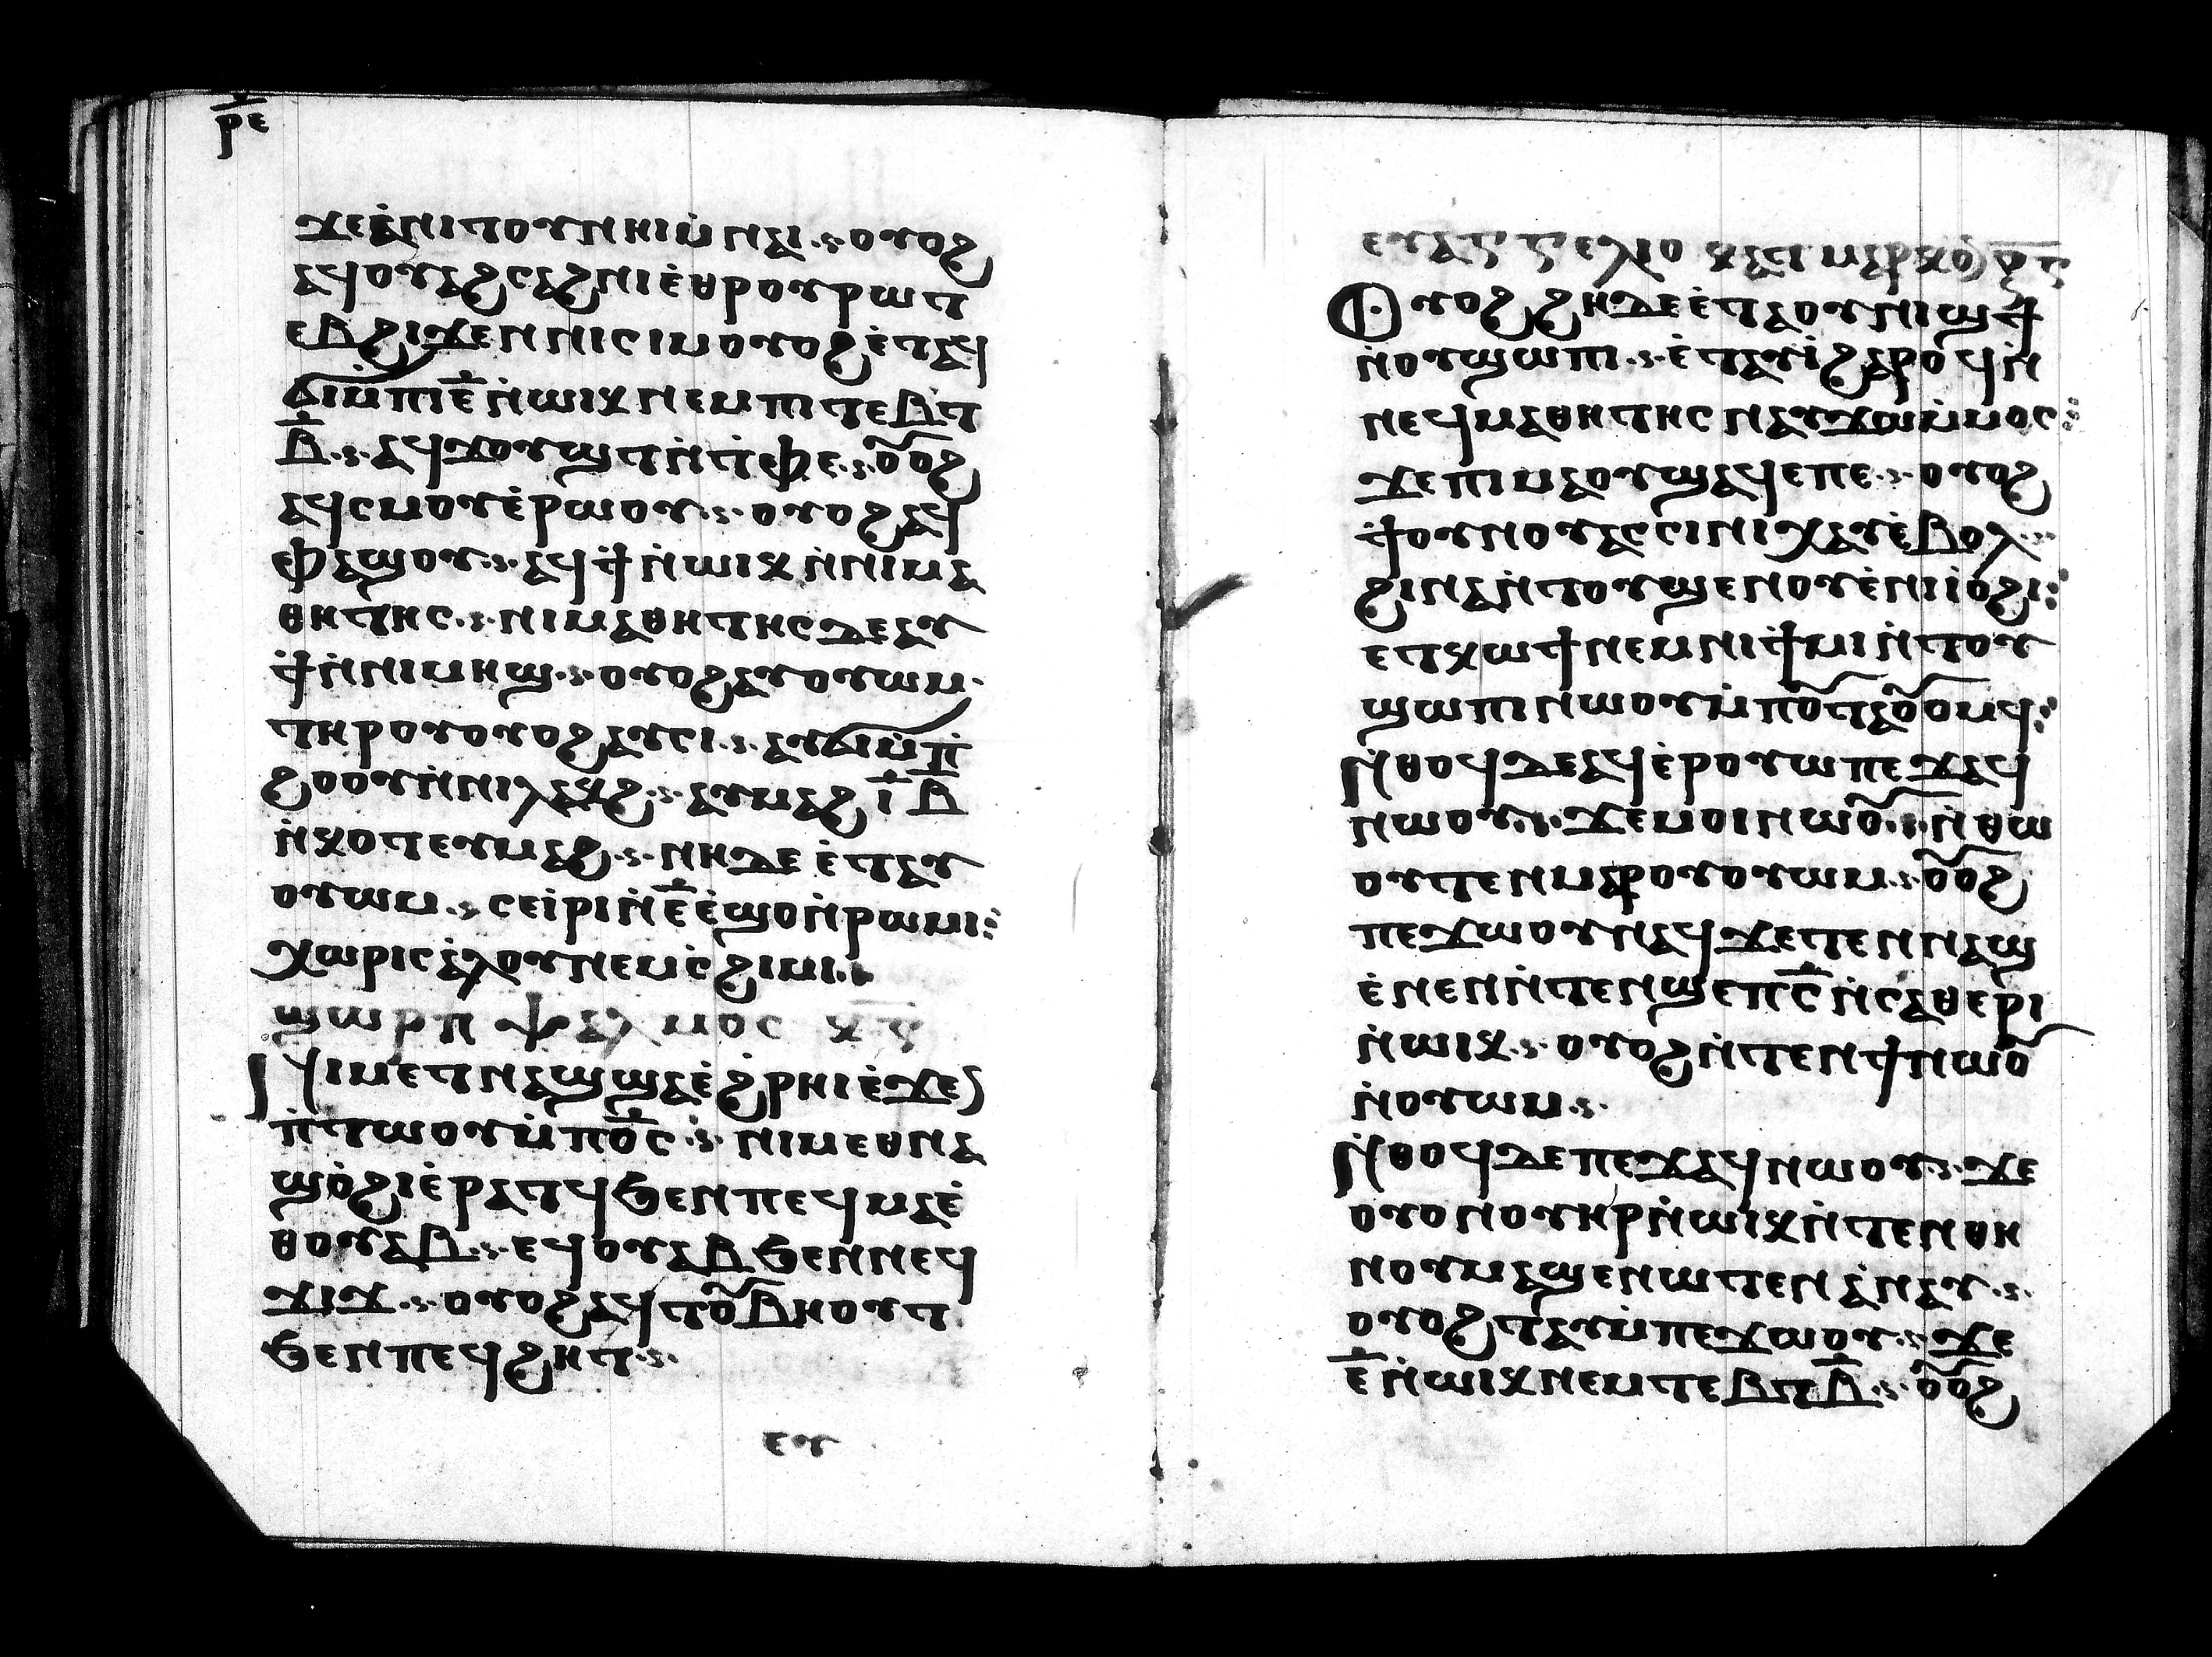 ⲣ̅ⲉ̅
ϫⲉⲁ̀ⲛⲓⲧⲟⲩⲛⲏⲓⲙ̀ⲛⲁⲓ .ⲋ. ⲟⲩⲟϩ
ⲁϥⲟⲩⲁϩⲥⲁϩⲛⲓⲉ̀ⲑⲣⲟⲩⲣⲱⲧ
ⲉⲃϩⲓϫⲉⲛⲛⲓⲥⲓⲙⲟⲩⲟϩⲉ̀ⲧⲁϥ
ϭⲓⲙ̀ⲡⲓⲉ̅ⲛ̀ⲱⲓⲕⲛⲉⲙⲡⲓⲧⲉⲃⲧ
ⲃ̅ .ⲋ. ⲁϥϫⲟⲩϣⲧⲛ̀ⲧ̀ⲫⲉ .ⲋ. ⲟ̅ⲟϩ
ⲁϥⲥⲙⲟⲩⲉ̀ⲣⲱⲟⲩ .ⲋ. ⲟⲩⲟϩⲁϥ
ⲉⲫⲁϣⲟⲩ .ⲋ. ⲁϥϯⲛ̀ⲱⲓⲕⲛ̀ⲛⲓⲙⲁ
ⲑⲏⲧⲏⲥ .ⲋ. ⲛⲓⲙⲁⲑⲏⲧⲏⲥⲇⲉⲁⲩ
ϯⲛ̀ⲛⲓⲙⲏϣ .ⲋ. ⲟⲩⲟϩⲁⲩⲟⲩⲱⲙ
ⲧⲏⲣⲟⲩⲟⲩⲟϩⲁⲩⲥⲓ .ⲋ. ⲁⲩϭⲓⲙ̀ⲡ̀
ϩⲟⲟⲩⲛ̀ⲛⲓⲗⲁⲕϩ .ⲋ. ⲁⲩⲙⲁϩⲓ̅ⲃ̅
ⲛ̀ⲕⲟⲧⲉⲩⲙⲁϩ .ⲋ. ⲛⲏⲇⲉⲉ̀ⲧⲁⲩ
ⲟⲩⲱⲙ .ⲋ. ⲥⲉⲓ̀ⲣⲓⲛ̀ⲉ̅ⲉ̀ϣⲟⲛ̀ⲣⲱⲙⲓ⁖
ⲭⲱⲣⲓⲥⲁ̀ⲗⲟⲩⲛⲉⲙⲥ̀ϩⲓⲙⲓ.
ϣⲱⲣⲡ ⲯⲁⲗⲙⲟⲥ ⲕ̅ⲅ̅
ⲛⲓⲙⲉⲧⲛⲁϣϣⲁⲉ̀ϩ̀ⲣⲏⲓⲉ̀ϫⲉ
ⲡ̀ⲧⲱⲟⲩⲙ̀ⲡⲟ̅ⲥ̅ .ⲋ. ⲛⲓⲙⲉⲑⲛⲁ
ϣⲟ̀ϩⲓⲉ̀ⲣⲁⲧϥϧⲉⲛⲡⲉϥⲙⲁⲉ̀
ⲑⲟⲩⲁⲃ .ⲋ. ⲉϥⲟⲩⲁⲃϧⲉⲛⲛⲉϥ
ϫⲓϫ .ⲋ. ⲟⲩⲟϩⲁϥⲧⲟ̅ⲃⲏⲟⲩⲧ
ϧⲉⲛⲡⲉϥϩⲏⲧ .ⲋ.
ⲉⲩ
ⲉⲩⲁⲅⲅⲉⲗⲓⲟ ⲕⲁⲧⲙⲁⲣⲕⲟ
ⲟⲩⲟϩϩⲏⲇⲉⲉ̀ⲧⲁⲟⲩⲛⲓϣϯ
ⲛ̀ⲟⲩϣⲱⲡⲓ .ⲋ. ⲉ̀ⲧⲁⲩⲓ̀ϩⲁⲣⲟϥⲛ̀
ⲛⲉϥⲙⲁⲑⲏⲧⲏⲥⲛⲁⲩϫⲱⲙ̀ⲙⲟⲥ⁖
ϫⲉⲡⲓⲙⲁⲟⲩϣⲁϥⲉⲡⲉ .ⲋ. ⲟⲩⲟϩ
ϯⲟⲩⲛⲟⲩⲁⲥⲥⲓⲛⲓⲭⲁⲩⲉ̀ⲃⲟⲗ .ⲋ.
ϩⲓⲛⲁⲛ̀ⲧⲟⲩϣⲉⲛⲟⲩⲉ̀ⲛⲓⲓ̀ⲟϩⲓ⁖
ⲉⲧⲕⲱϯⲛⲉⲙⲛⲓϯⲙⲓⲛ̀ⲧⲟⲩ
ϣⲱⲡⲓⲛⲱⲟⲩⲙ̀ⲡⲟ̅ⲧⲁⲟ̅ⲟⲙϥ⁖
ⲛ̀ⲑⲟϥⲇⲉⲁϥⲉ̀ⲣⲟⲩⲱⲡⲉϫⲁϥ
ⲛⲱⲟⲩ .ⲋ. ϫⲉⲙⲟⲓⲛⲱⲟ̅ .ⲋ. ⲛ̀ⲑⲱ
ⲟⲩⲧⲉⲛⲙⲁⲣⲟⲩⲟⲩⲱⲙ .ⲋ. ⲟ̅ⲟϩ
ⲡⲉϫⲱⲟⲩⲛⲁϥϫⲉⲧⲉⲛⲛⲁϣ
ⲉ̀ⲛⲉⲛⲛ̀ⲧⲉⲛϣⲉⲡⲥ̅ⲛ̀ⲥⲁⲑⲉⲣⲓ
ⲛ̀ⲱⲓⲕ .ⲋ. ⲟⲩⲟϩⲛ̀ⲧⲉⲛϯⲛⲱⲟ̅
ⲛ̀ⲟⲩⲱⲙ .ⲋ.
ⲛ̀ⲑⲟϥⲇⲉⲡⲉϫⲁϥⲛⲱⲟⲩ .ⲋ. ϫⲉ
ⲟⲩⲟⲛⲟⲩⲏⲣⲛ̀ⲱⲓⲕⲛ̀ⲧⲉⲛⲑⲏ
ⲛⲟⲩⲙⲁϣⲉⲛⲱⲧⲉⲛⲁ̀ⲛⲁⲩ .ⲋ.
ⲟⲩⲟϩⲧⲁⲩⲙ̀ⲡⲉϫⲱⲟⲩ .ⲋ. ϫⲉ
ⲉ̅ⲛ̀ⲱⲓⲕⲛⲉⲙⲧⲉⲃⲧⲃ̅ .ⲋ. ⲟ̅ⲟϩ